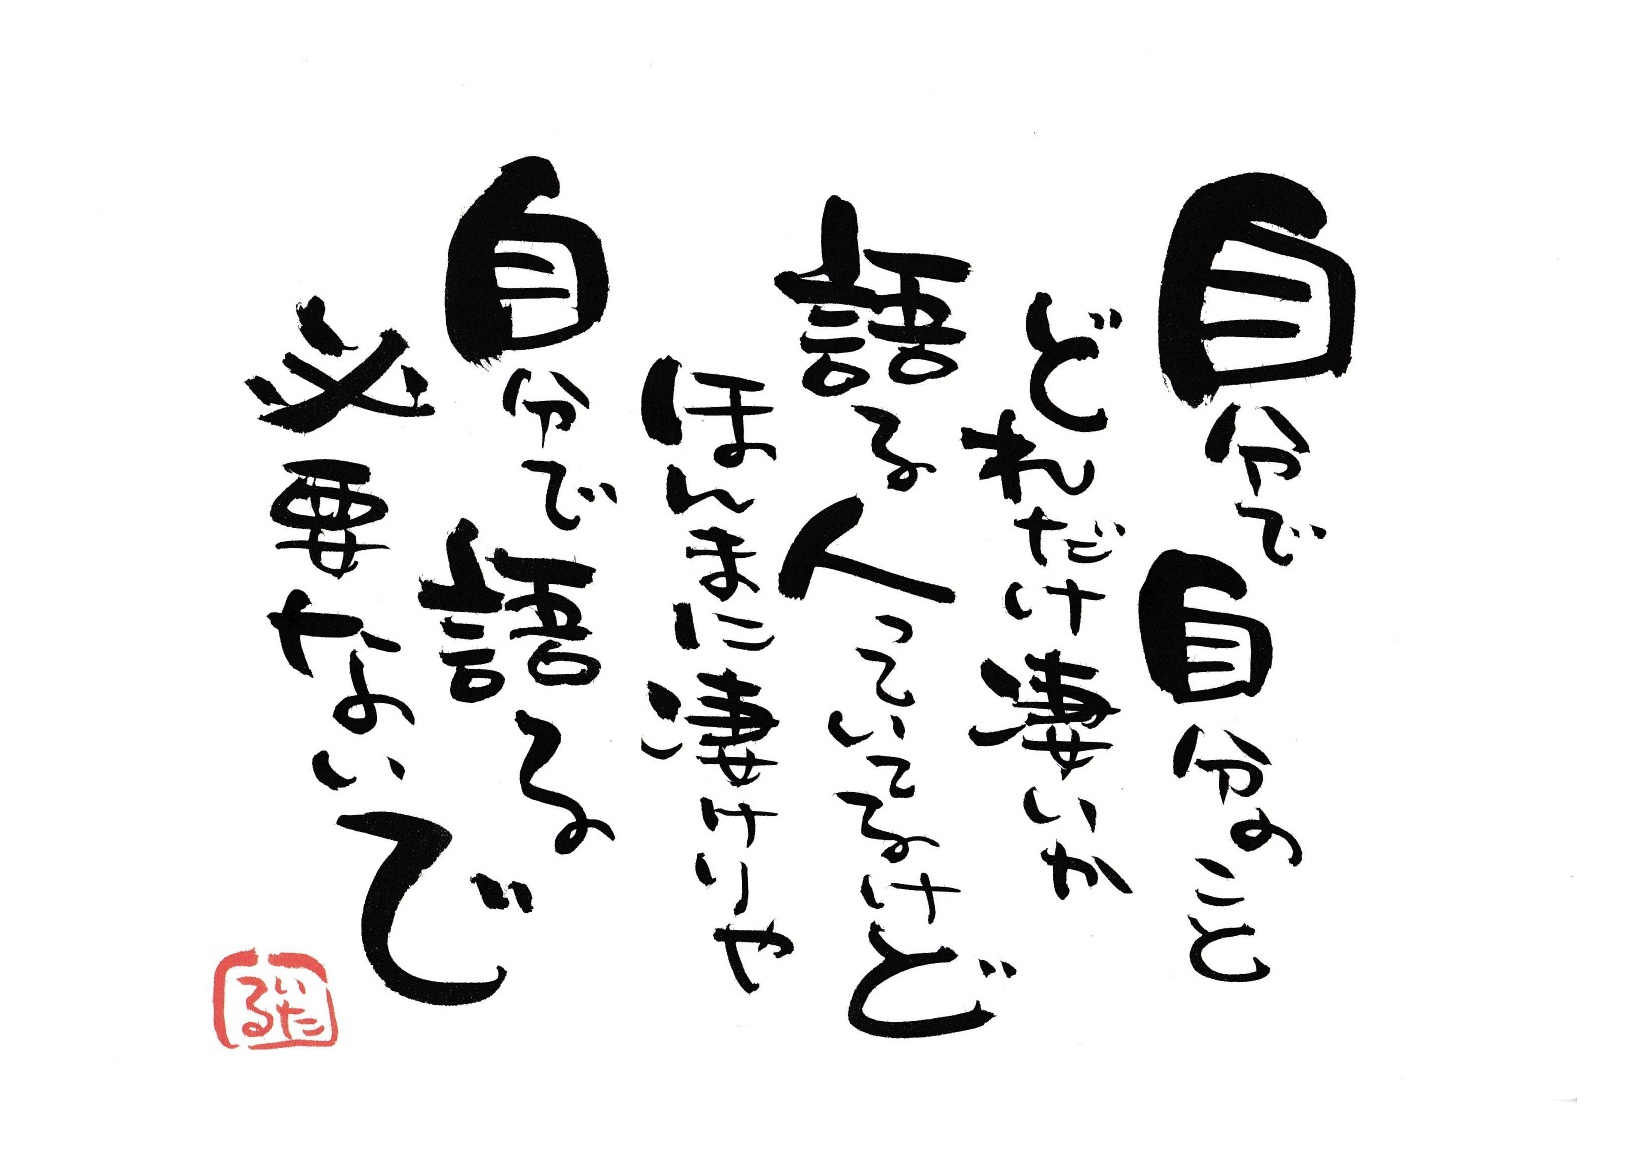 自分で自分のこと
どれだけ凄いか
語る人っていてるけど
ほんまに凄けりゃ
自分で語る
必要ないで
いたる